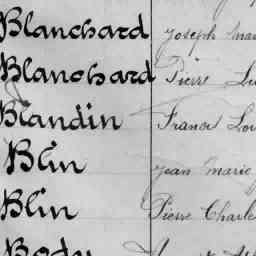 Blanchard Joseph Mar
Blanchard Pierre
Blandin Franco
Blin Jean Marie
Blin Pierre Charle
Body